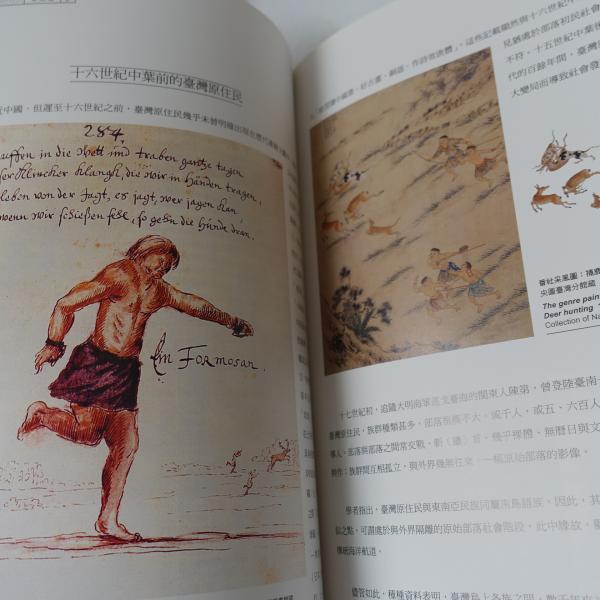 十六世紀中葉前的臺灣原住民
中國，但遲至十六世紀之前，臺灣原住民幾乎未曾明確出現在歷代
284
auffen in die wett und traben gantze tagen
der Klincker klangk, die wir in händen tragen,
leben von der Jagt, es jagt, wer jagen kan
wenn wir schießen fehl, so gehn die hunde dran.
Ein Formosan.
見猶處於部落初民社會
不符，十五世紀中葉後
代的百餘年間，臺灣
大變局而導致社會發
番社采風圖：捕鹿
央圖臺灣分館藏
The genre pain
Deer hunting
Collection of Na
十七世紀初，追隨大明海軍逐戈臺海的閩東人陳第，曾登陸臺南一
臺灣原住民，族群種類甚多，部落規模不大，或千人，或五、六百人
尊人，部落與部落之間常交戰，斬（
無曆日與文
耕作；族群間互相孤立，與外界幾無往來，一幅原始部落的影像。
學者指出，臺灣原住民與東南亞民族同屬南島語族，因此，其
似之點，可謂處於與外界隔離的原始部落社會階段，此中緣故，
傳統海洋航道。
儘管如此，種種資料表明，臺灣島上各族之間，數千年來